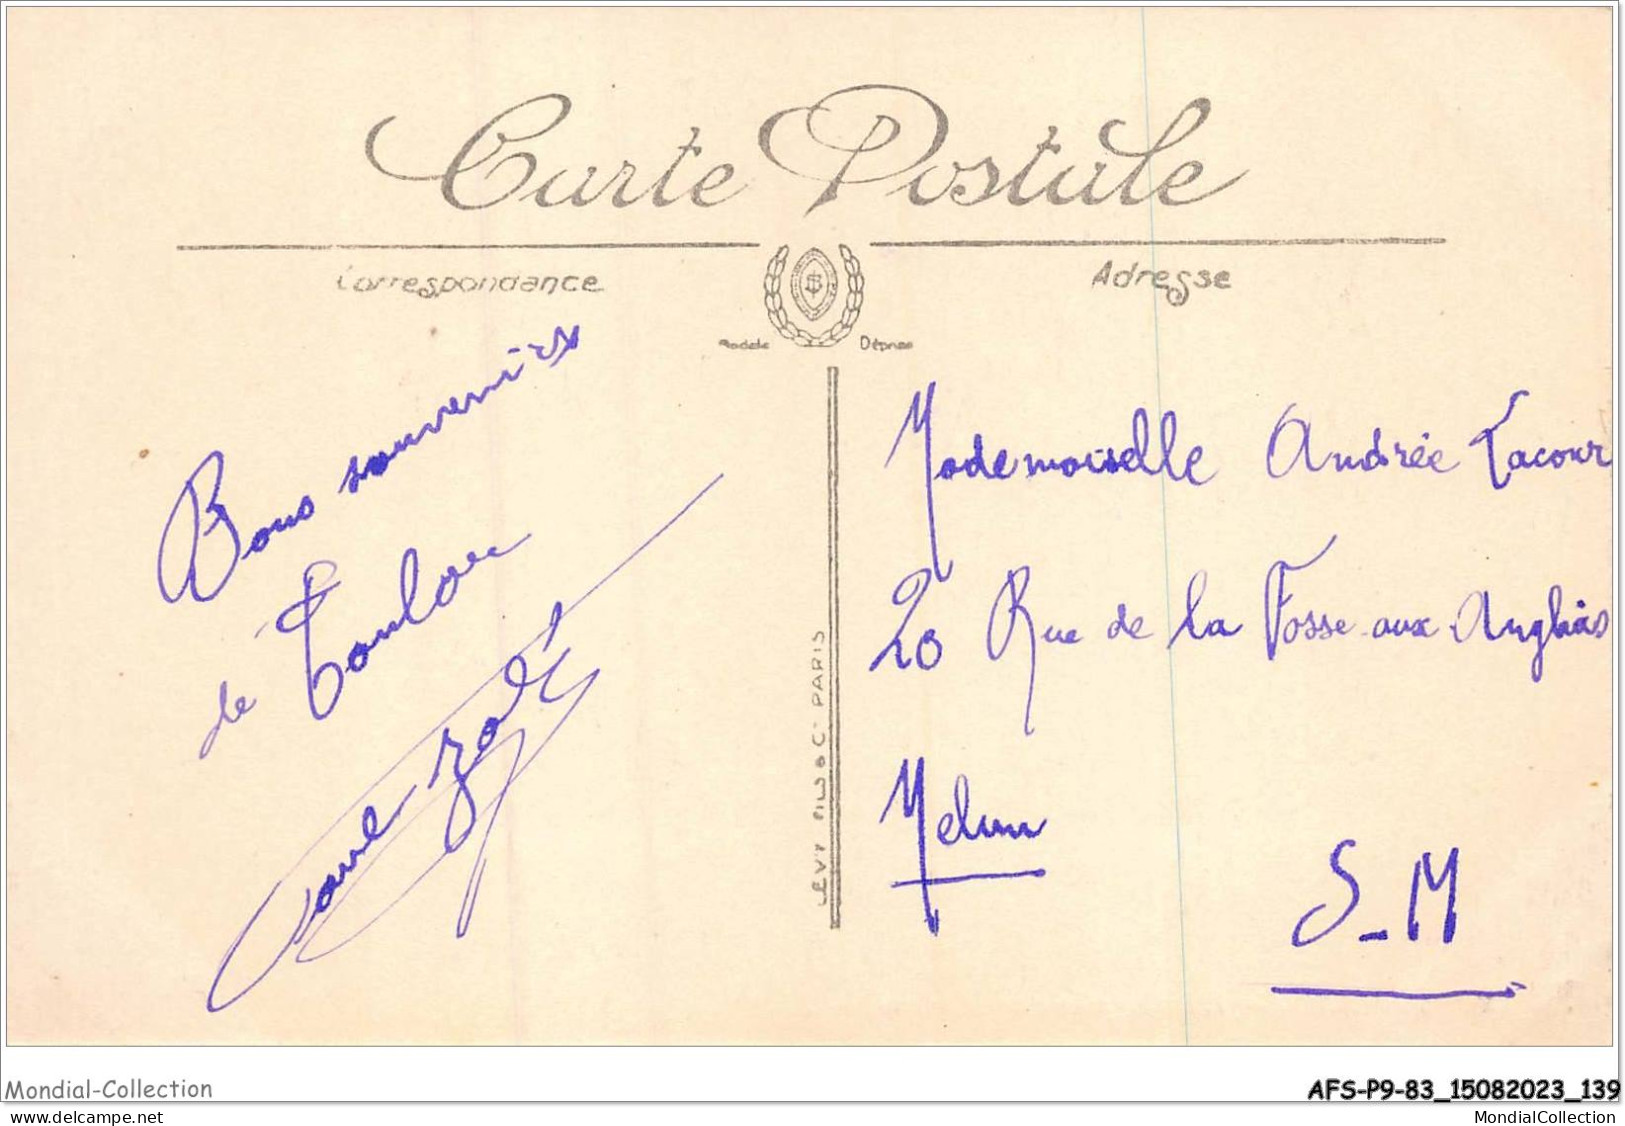 Carte Postale
Correspondance
Adresse
Modèle Déposé
Bons souvenirs
de Toulon
LÉVY FILS & Cie PARIS
Mademoiselle Andrée Lacour
20 Rue de la Fosse-aux-Anglais
Melun
S-M
Mondial-Collection
AFS-P9-83_15082023_139
www.delcampe.net
MondialCollection